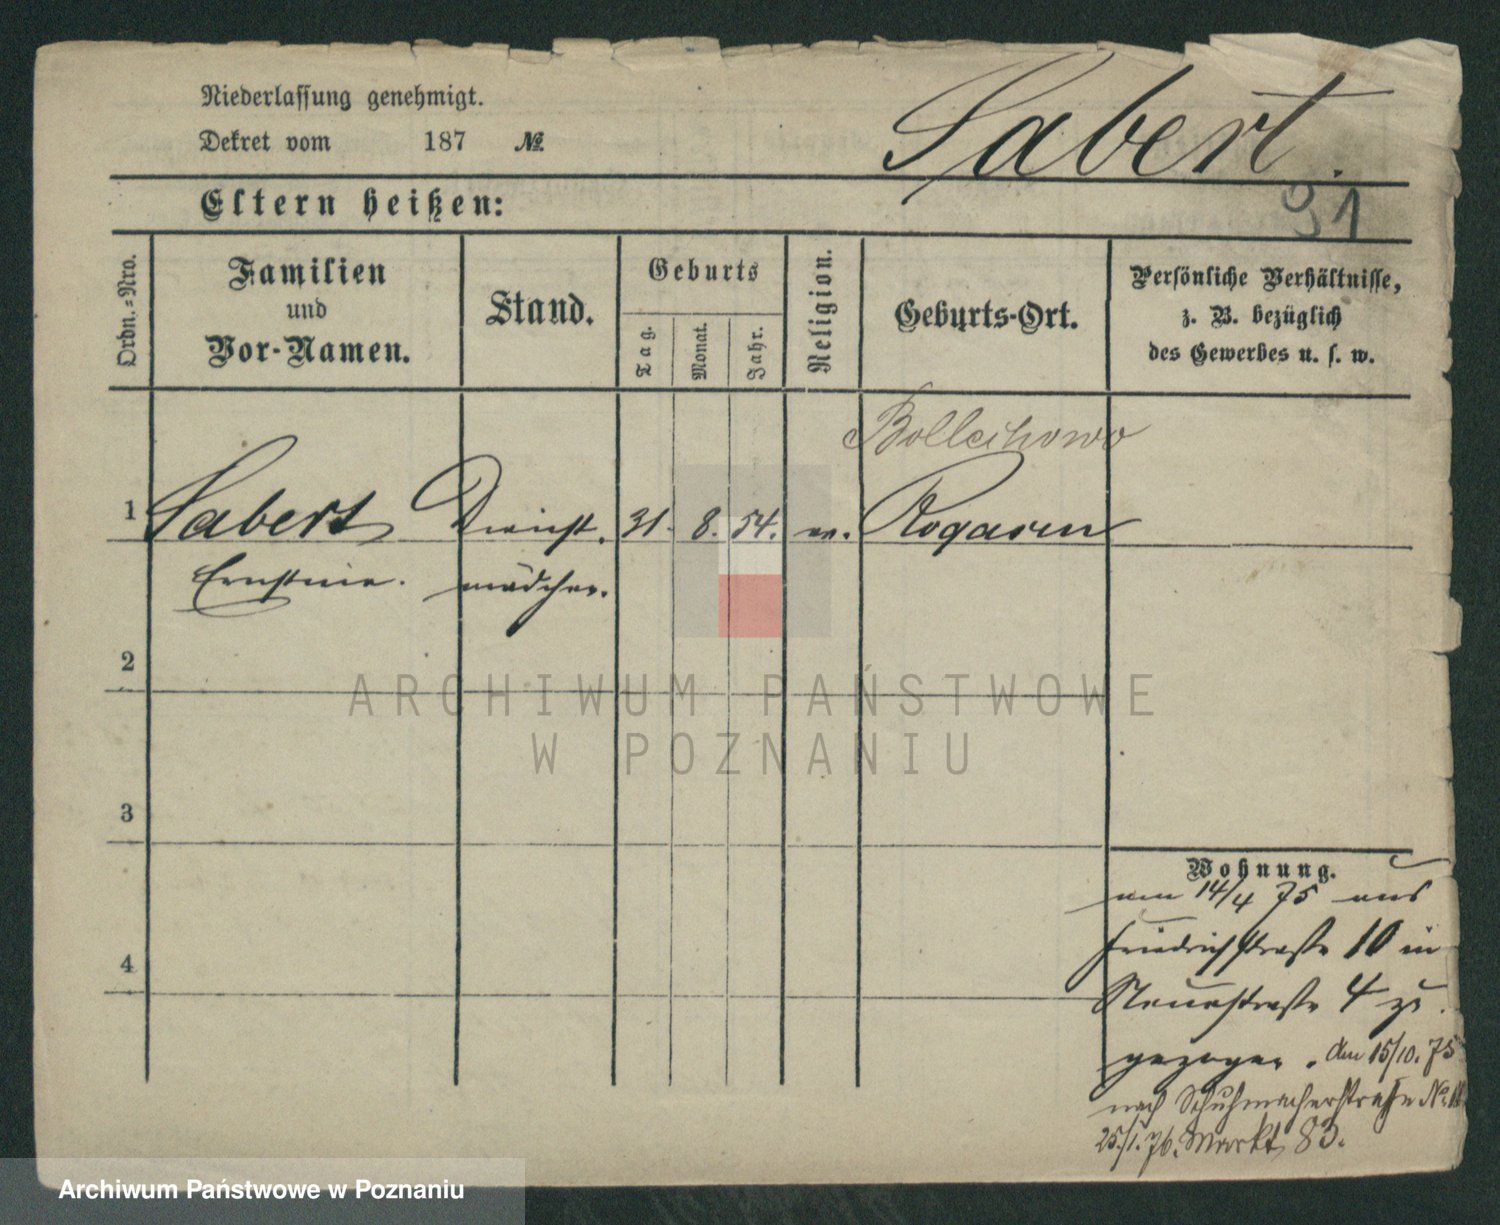 Niederlassung genehmigt.
Dekret vom 187 №
Sabert.
91
Eltern heißen:
Ordn.-Nro.
Familien
und
Vor-Namen.
Stand.
Geburts
Tag.
Monat.
Jahr.
Religion.
Geburts-Ort.
Persönliche Verhältnisse,
z. B. bezüglich
des Gewerbes u. s. w.
Bollechowo
1 Sabert Dienst. 31. 8. 54. ev. Rogasen
Ernstine. mädchen.
2
3
4
ARCHIWUM PAŃSTWOWE
W POZNANIU
Wohnung.
am 14/4 75 aus
Friedrichstraße 10 in
Neuestraße 4 zu
gezogen. den 15/10. 75
nach Schuhmacherstraße No.
25/1. 76. Markt 83.
Archiwum Państwowe w Poznaniu